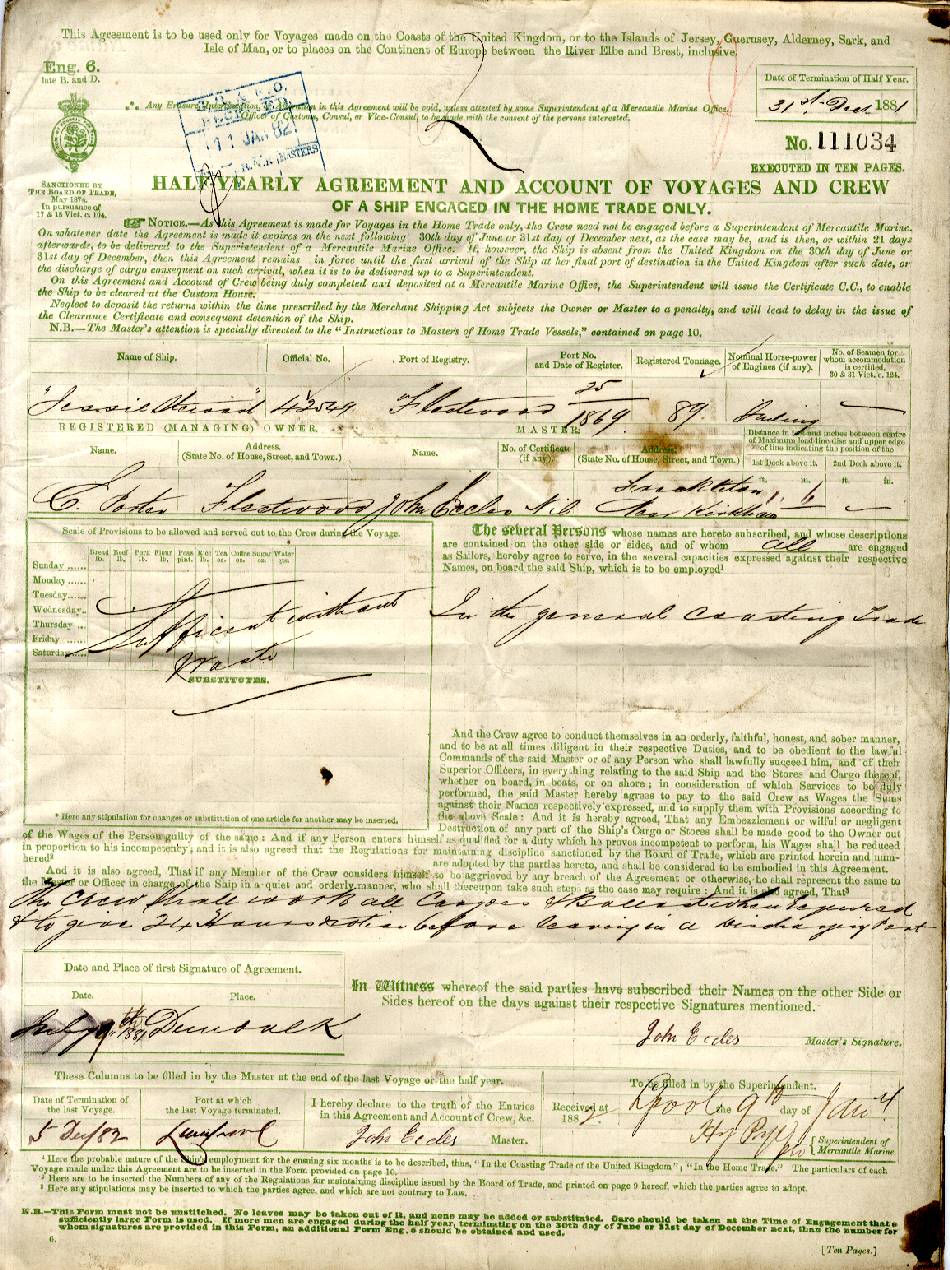 This Agreement is to be used only for Voyages made on the Coasts of the United Kingdom, or to the Islands of Jersey, Guernsey, Alderney, Sark, and
Isle of Man, or to places on the Continent of Europe between the River Elbe and Brest, inclusive.
Eng. 6.
late B. and D.
Date of Termination of Half Year.
31st Dec 1881
Any Erasure, Interlineation, or Alteration in this Agreement will be void, unless attested by some Superintendent of a Mercantile Marine Office,
Officer of Customs, Consul, or Vice-Consul, to be made with the consent of the persons interested.
11 JAN 82
No. 111034
EXECUTED IN TEN PAGES.
SANCTIONED BY
THE BOARD OF TRADE,
May 1874.
In pursuance of
17 & 18 Vict. c. 104.
HALF-YEARLY AGREEMENT AND ACCOUNT OF VOYAGES AND CREW
OF A SHIP ENGAGED IN THE HOME TRADE ONLY.
NOTICE.—As this Agreement is made for Voyages in the Home Trade only, the Crew need not be engaged before a Superintendent of Mercantile Marine.
On whatever date the Agreement is made it expires on the next following 30th day of June or 31st day of December next, as the case may be, and is then, or within 21 days
afterwards, to be delivered to the Superintendent of a Mercantile Marine Office. If, however, the Ship is absent from the United Kingdom on the 30th day of June or
31st day of December, then this Agreement remains in force until the first arrival of the Ship at her final port of destination in the United Kingdom after such date, or
the discharge of cargo consequent on such arrival, when it is to be delivered up to a Superintendent.
On this Agreement and Account of Crew being duly completed and deposited at a Mercantile Marine Office, the Superintendent will issue the Certificate C.C., to enable
the Ship to be cleared at the Custom House.
Neglect to deposit the returns within the time prescribed by the Merchant Shipping Act subjects the Owner or Master to a penalty, and will lead to delay in the issue of
the Clearance Certificate and consequent detention of the Ship.
N.B.—The Master's attention is specially directed to the "Instructions to Masters of Home Trade Vessels," contained on page 10.
Name of Ship. Official No. Port of Registry. Port No. and Date of Register. Registered Tonnage. Nominal Horse-power of Engines (if any). No. of Seamen for whom accommodation is certified, 30 & 31 Vict. c. 124.
Fleetwood 25/1869 89
REGISTERED (MANAGING) OWNER. MASTER.
Distance in feet and inches between centre of Maximum load-line disc and upper edge of line indicating the position of the
Name. Address. (State No. of House, Street, and Town.) Name. No. of Certificate (if any). Address. (State No. of House, Street, and Town.) 1st Deck above it. 2nd Deck above it.
ft. in. ft. in.
Fleetwood John Eccles Freckleton near Kirkham 1 6
Scale of Provisions to be allowed and served out to the Crew during the Voyage.
Bread lb. Beef lb. Pork lb. Flour lb. Peas pint. Rice lb. Tea oz. Coffee oz. Sugar oz. Water qts.
Sunday
Monday
Tuesday
Wednesday
Thursday
Friday
Saturday
Sufficient without
waste
SUBSTITUTES.
* Here any stipulation for changes or substitution of one article for another may be inserted.
The several Persons whose names are hereto subscribed, and whose descriptions
are contained on the other side or sides, and of whom all are engaged
as Sailors, hereby agree to serve, in the several capacities expressed against their respective
Names, on board the said Ship, which is to be employed¹
In the general Coasting Trade
And the Crew agree to conduct themselves in an orderly, faithful, honest, and sober manner,
and to be at all times diligent in their respective Duties, and to be obedient to the lawful
Commands of the said Master or of any Person who shall lawfully succeed him, and of their
Superior Officers, in everything relating to the said Ship and the Stores and Cargo thereof,
whether on board, in boats, or on shore; in consideration of which Services to be duly
performed, the said Master hereby agrees to pay to the said Crew as Wages the Sums
against their Names respectively expressed, and to supply them with Provisions according to
the above Scale: And it is hereby agreed, That any Embezzlement or wilful or negligent
Destruction of any part of the Ship's Cargo or Stores shall be made good to the Owner out
of the Wages of the Person guilty of the same: And if any Person enters himself as qualified for a duty which he proves incompetent to perform, his Wages shall be reduced
in proportion to his incompetency; and it is also agreed that the Regulations for maintaining discipline sanctioned by the Board of Trade, which are printed herein and num-
bered² are adopted by the parties hereto, and shall be considered to be embodied in this Agreement.
And it is also agreed, That if any Member of the Crew considers himself to be aggrieved by any breach of the Agreement or otherwise, he shall represent the same to
the Master or Officer in charge of the Ship in a quiet and orderly manner, who shall thereupon take such steps as the case may require: And it is also agreed, That³
The Crew shall work all Cargoes & Ballast when required
& to give 24 Hours notice before leaving in a discharging Port
Date and Place of first Signature of Agreement.
Date. Place.
July 1881 Dundalk
In Witness whereof the said parties have subscribed their Names on the other Side or
Sides hereof on the days against their respective Signatures mentioned.
John Eccles Master's Signature.
These Columns to be filled in by the Master at the end of the last Voyage or the half year.
Date of Termination of the last Voyage. Port at which the last Voyage terminated.
I hereby declare to the truth of the Entries
in this Agreement and Account of Crew, &c.
John Eccles Master.
Liverpool
To be filled in by the Superintendent.
Received at Lpool the 9th day of Jany
188
Superintendent of
Mercantile Marine
¹ Here the probable nature of the Ship's employment for the ensuing six months is to be described, thus, "In the Coasting Trade of the United Kingdom"; "In the Home Trade." The particulars of each
Voyage made under this Agreement are to be inserted in the Form provided on page 10.
² Here are to be inserted the Numbers of any of the Regulations for maintaining discipline issued by the Board of Trade, and printed on page 9 hereof, which the parties agree to adopt.
³ Here any stipulations may be inserted to which the parties agree, and which are not contrary to Law.
N.B.—This Form must not be unstitched. No leaves may be taken out of it, and none may be added or substituted. Care should be taken at the Time of Engagement that a
sufficiently large Form is used. If more men are engaged during the half year, terminating on the 30th day of June or 31st day of December next, than the number for
whom signatures are provided in this Form, an additional Form Eng. 6 should be obtained and used.
6.
[Ten Pages.]